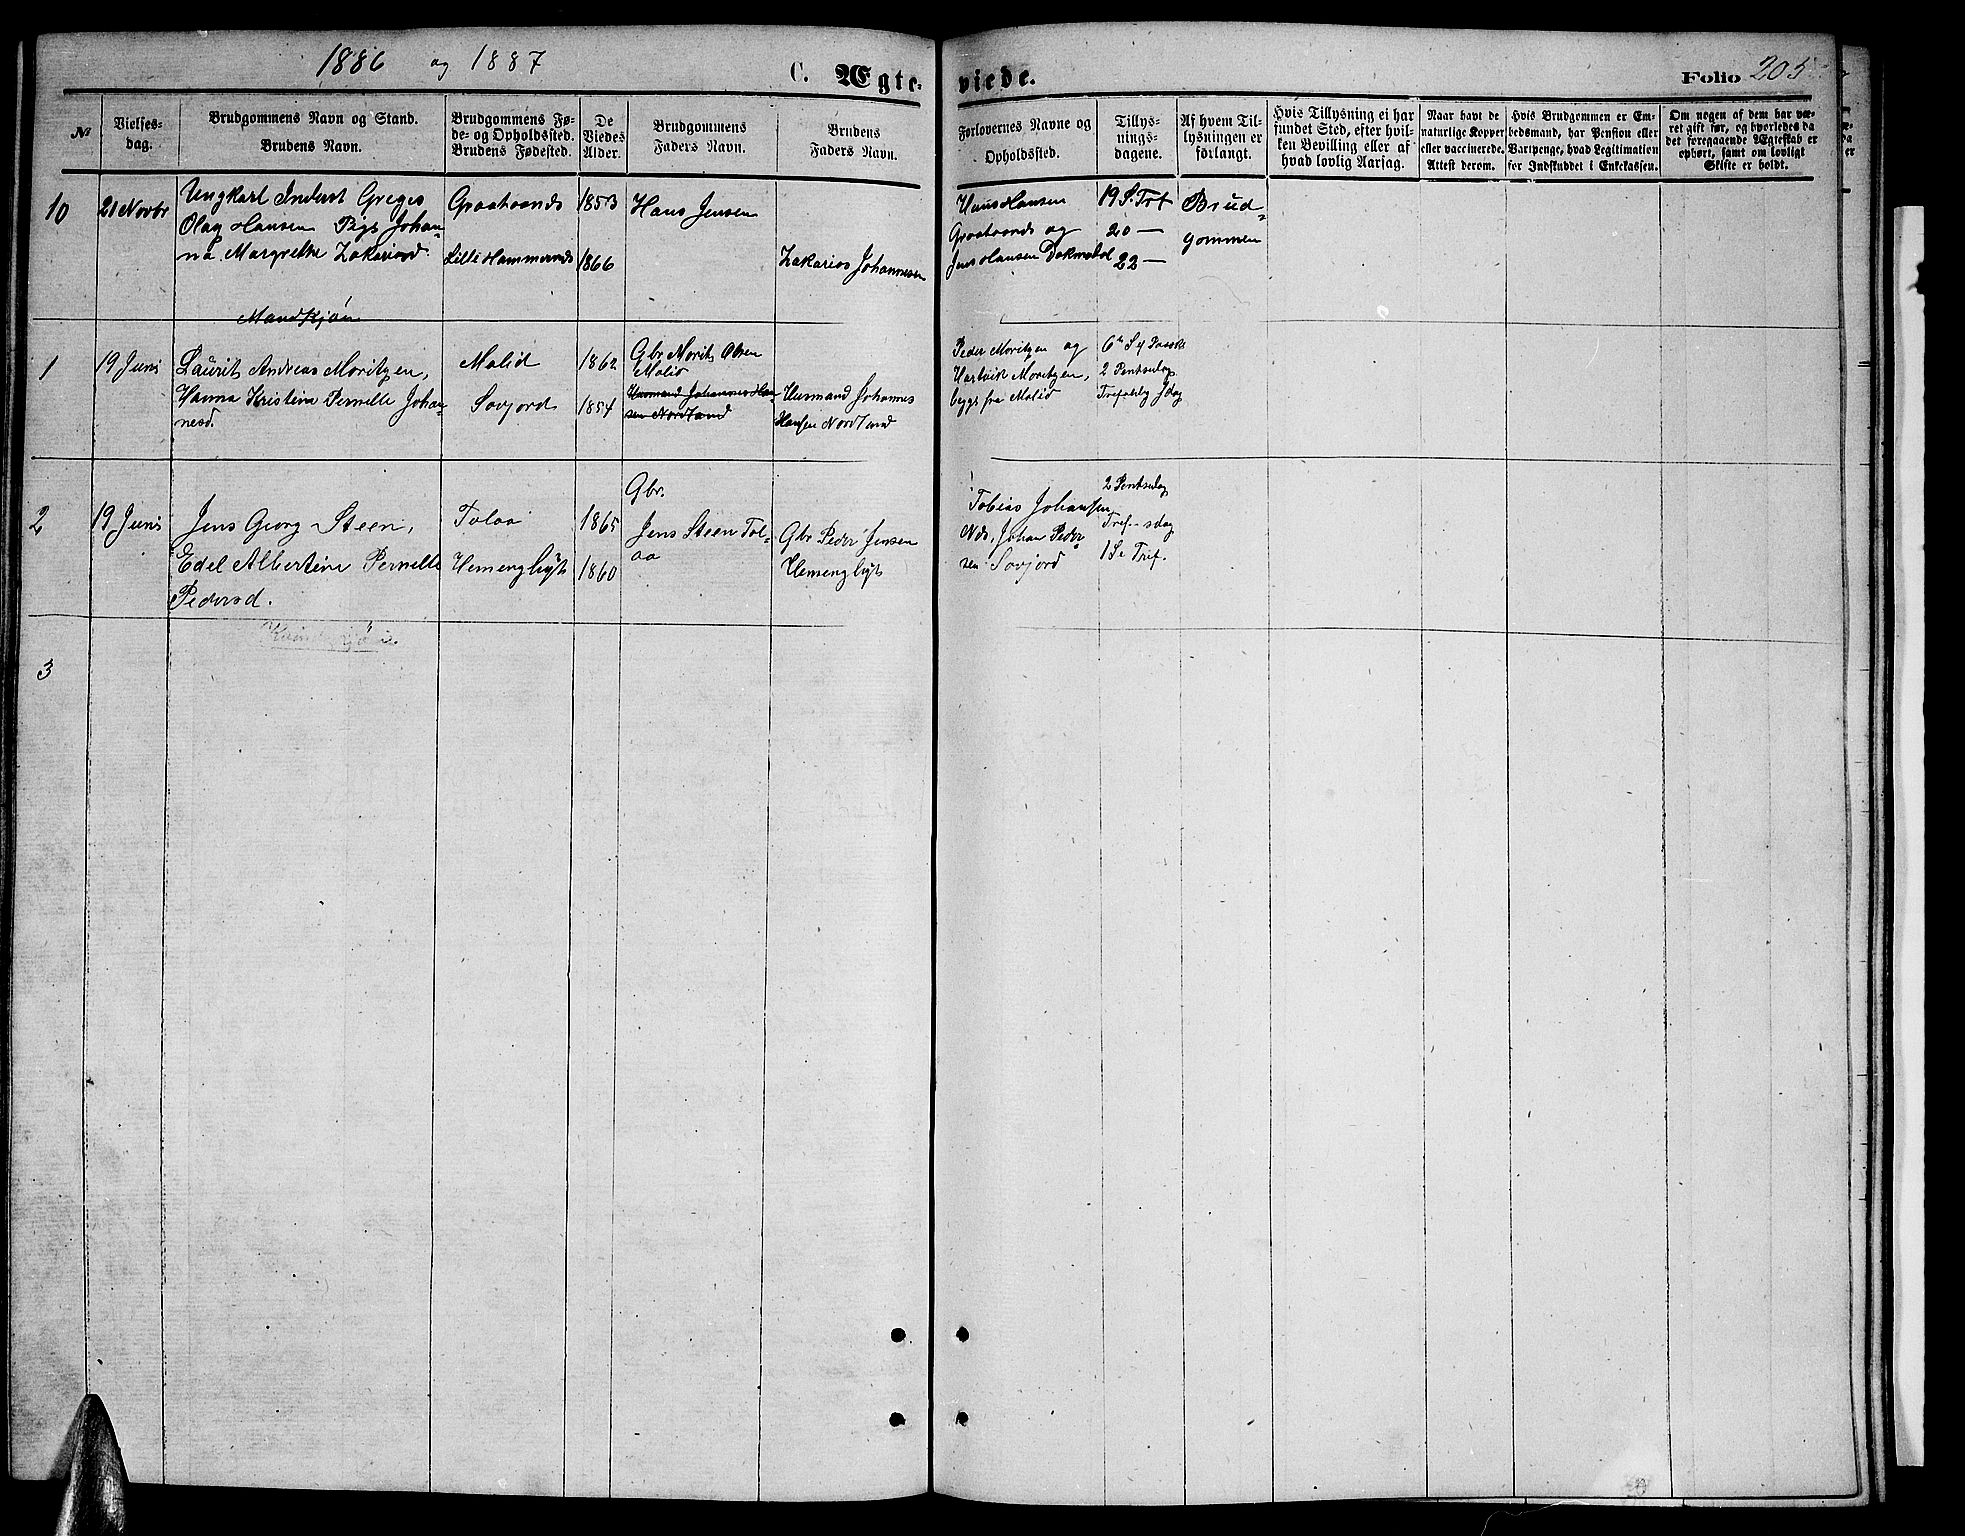 1886 og 1887
C. Ægte-
viede.
Folio 205
№
Vielses-
dag.
Brudgommens Navn og Stand.
Brudens Navn.
Brudgommens Fø-
de- og Opholdssted.
Brudens Fødested.
De
Viedes
Alder.
Brudgommens
Faders Navn.
Brudens
Faders Navn.
Forlovernes Navne og
Opholdssted.
Tillys-
nings-
dagene.
Af hvem Til-
lysningen er
forlangt.
Hvis Tillysning ei har
fundet Sted, efter hvil-
ken Bevilling eller af
hvad lovlig Aarsag.
Naar havt de
naturlige Kopper
eller vaccinerede.
Attest derom.
Hvis Brudgommen er Em-
bedsmand, har Pension eller
Vartpenge, hvad Legitimation
for Indskuddet i Enkekassen.
Om nogen af dem har væ-
ret gift før, og hvorledes da
det foregaaende Ægteskab er
ophørt, samt om lovligt
Skifte er holdt.
10
21 Novbr
Ungkarl Inderst Greges
Olag Hansen Pige Johan-
na Margrethe Zakariasd.
Graatrands
Lille Hammerands
1853
1866
Hans Jensen
Zakarias Johannesen
Hans Hansen
Graatrands og
Jens Hansen Dokmohol
19 S. Trf
20 —
22 —
Brud-
gommen
Mandkjøn
1
19 Juni
Laurits Andreas Moritzen,
Hanna Kristina Pernille Johan
nesd.
Molid
Sovjord
1862
1854
Gbr Morits Olsen
Molid
Husmand Johannes Han
sen Nordland
Husmand Johannes
Hansen Nordland
Peder Moritzen og
Hartvik Moritzen,
begge fra Molid
6te S e Paaske
2 Pentsedag
Trefoldig Jdag
2
19 Juni
Jens Georg Steen,
Edel Albertine Pernille
Pedersd.
Tolaa
Hemenghygt
1865
1860
Gbr.
Jens Steen Tol-
aa
Gbr Peder Jensen
Hemenghygt
Tobias Johansen
Nds, Johan Peder
sen Sovjord
2 Pentsedag
Tref. sdag
1 S e Tref.
Kvindekjøn.
3